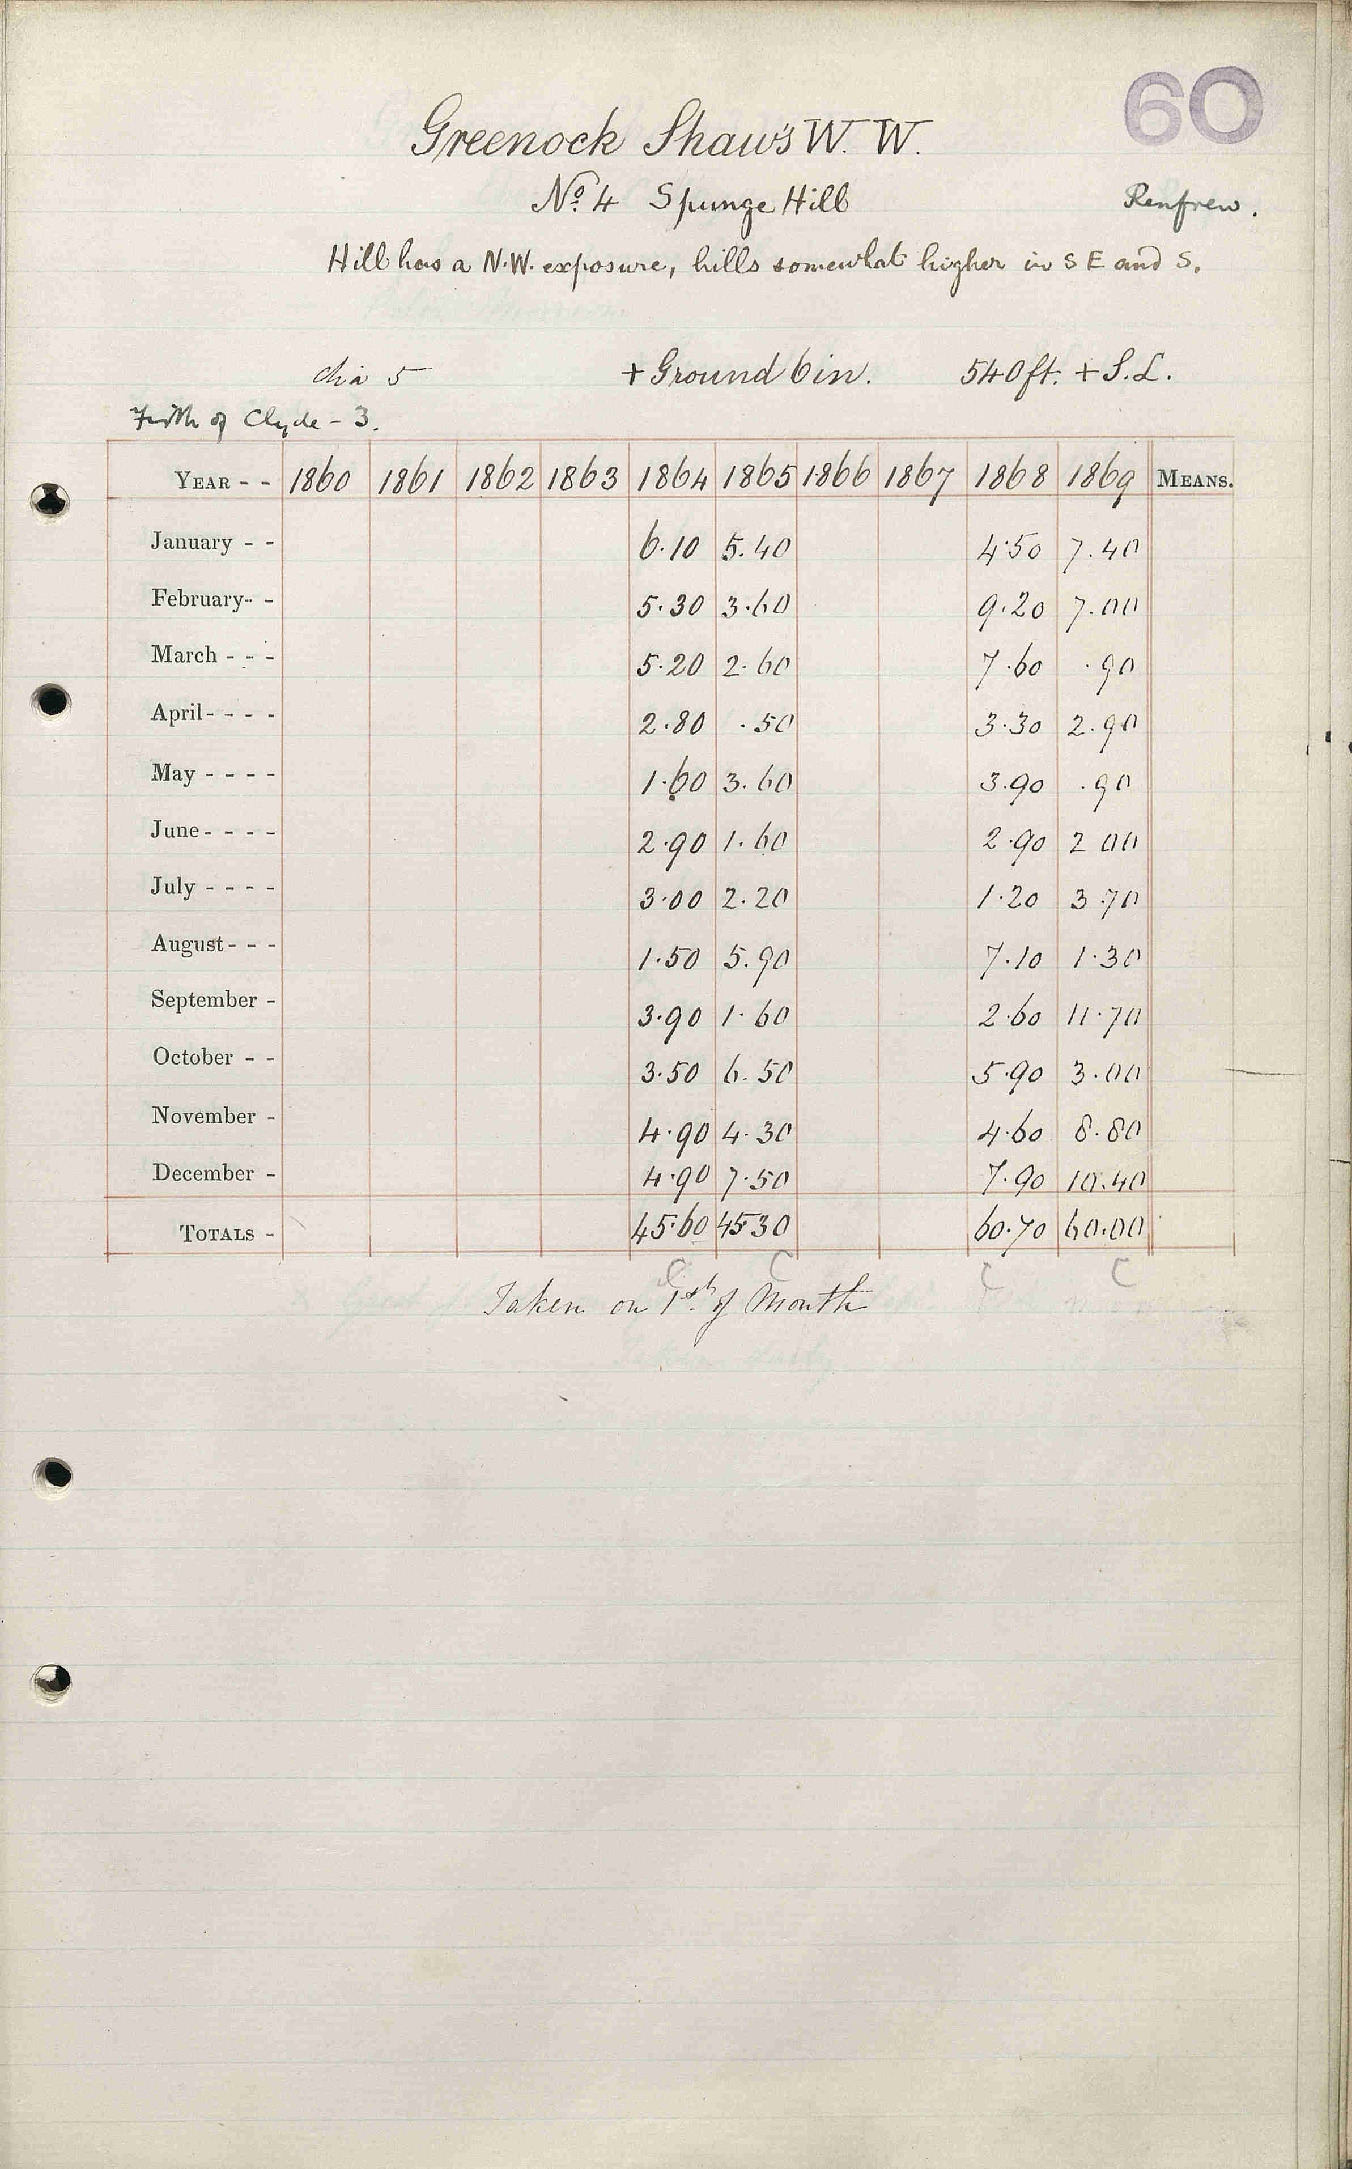 60
Greenock Shaws W. W.
No. 4 Spunge Hill Renfrew.
Hill has a N.W. exposure, hills somewhat higher in S E and S.
dia 5 + Ground 6in. 540ft. + S.L.
Firth of Clyde - 3.
YEAR - - 1860 1861 1862 1863 1864 1865 1866 1867 1868 1869 MEANS.
January - - 6.10 5.40 4.50 7.40
February - - 5.30 3.60 9.20 7.00
March - - - 5.20 2.60 7.60 .90
April - - - - 2.80 .50 3.30 2.90
May - - - - 1.60 3.60 3.90 .90
June - - - - 2.90 1.60 2.90 2 00
July - - - - 3.00 2.20 1.20 3.70
August - - - 1.50 5.90 7.10 1.30
September - 3.90 1.60 2.60 11.70
October - - 3.50 6.50 5.90 3.00
November - 4.90 4.30 4.60 8.80
December - 4.90 7.50 7.90 10.40
TOTALS - 45.60 45.30 60.70 60.00
C C C C
Taken on 1st of Month